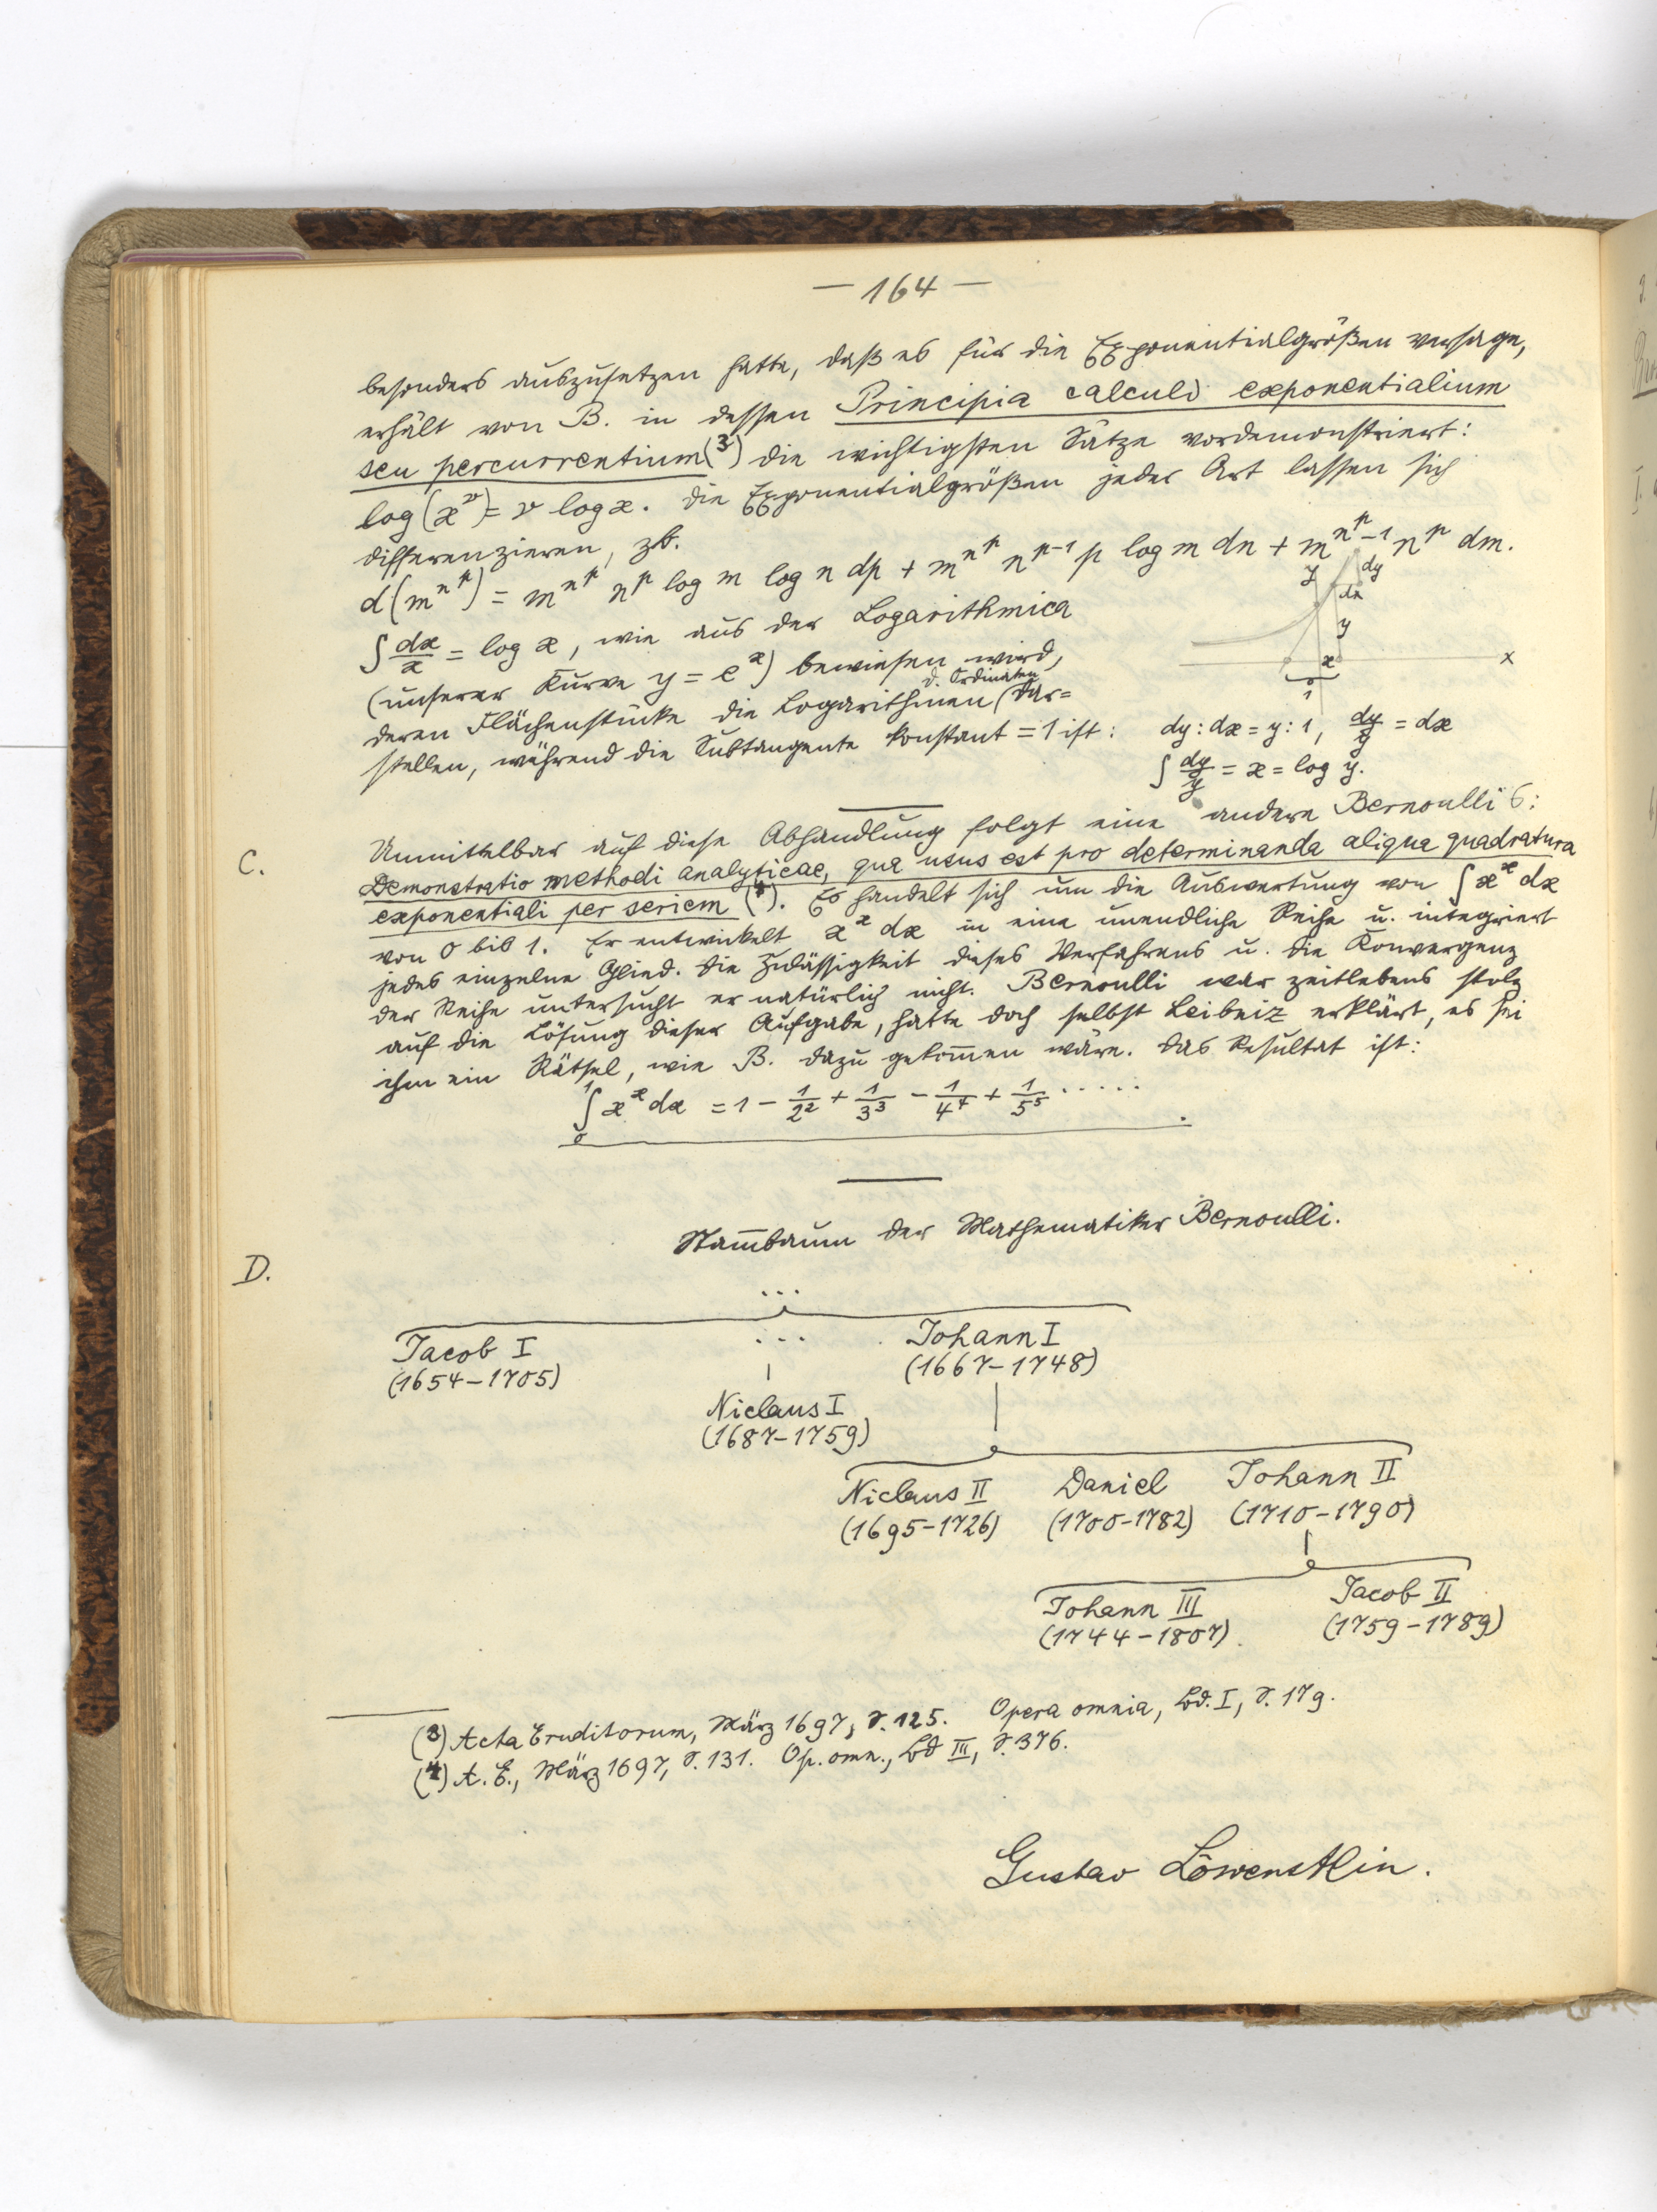 — 164 —
besonders auszusetzen hatte, daß es für die Exponentialgrößen versage,
erhält von B. in dessen Principia calculi exponentialium
seu percurrentium (3) die wichtigsten Sätze vordemonstriert:
log (x^v) = v log x. Die Exponentialgrößen jeder Art lassen sich
differenzieren, zb.
d(m^{n^p}) = m^{n^p} n^p log m log n dp + m^{n^p} n^{p-1} p log m dn + m^{n^p - 1} n^p dm.
∫ dx/x = log x, wie aus der Logarithmica
(unserer Kurve y = e^x) bewiesen wird,
deren Flächenstücke die Logarithmen (d. Ordinaten) dar=
stellen, während die Subtangente konstant = 1 ist:
y dy
dx
y
x x
1
dy : dx = y : 1, dy/y = dx
∫ dy/y = x = log y.
C.
Unmittelbar auf diese Abhandlung folgt eine andere Bernoulli's:
Demonstratio methodi analyticae, qua usus est pro determinanda aliqua quadratura
exponentiali per seriem (4). Es handelt sich um die Auswertung von ∫ x^x dx
von 0 bis 1. Er entwickelt x^x dx in eine unendliche Reihe u. integriert
jedes einzelne Glied. Die Zulässigkeit dieses Verfahrens u. die Konvergenz
der Reihe untersucht er natürlich nicht. Bernoulli war zeitlebens stolz
auf die Lösung dieser Aufgabe, hatte doch selbst Leibniz erklärt, es sei
ihm ein Rätsel, wie B. dazu gekom̄en wäre. Das Resultat ist:
∫₀¹ x^x dx = 1 − 1/2² + 1/3³ − 1/4⁴ + 1/5⁵ . . . . .
D.
Stam̄baum der Mathematiker Bernoulli.
. . .
Jacob I . . . Johann I
(1654–1705) (1667–1748)
Niclaus I
(1687–1759)
Niclaus II Daniel Johann II
(1695–1726) (1700–1782) (1710–1790)
Johann III Jacob II
(1744–1807). (1759–1789)
(3) Acta Eruditorum, März 1697, S. 125. Opera omnia, Bd. I, S. 179.
(4) A. E., März 1697, S. 131. Op. omn., Bd III, S. 376.
Gustav Löwenstein.